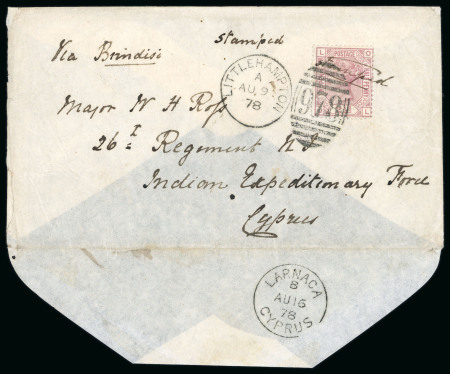 Via Brindisi
stamped
LITTLEHAMPTON
A
AU 9
78
L O
POSTAGE
978
O L
Major W H Ross
26th Regiment N I
Indian Expeditionary Force
Cyprus
LARNACA
B
AU 16
78
CYPRUS